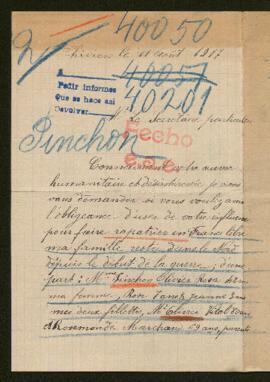 2 40050
le 11 Août 1917
A
40057
Pedir informes
Que se hace así
Devolver
40201
la Secrétaire particulier
Hecho
Pinchon
Connaissant votre œuvre
humanitaire et désintéressée je viens
vous demander si vous voulez avoir
l'obligeance d'user de votre influence
pour faire rapatrier en France libre
ma famille restée dans le Nord
depuis le début de la guerre, d'une
part: Mme Pinchon Olivier Rosa
ma femme, Rose Jeanne 3 ans
mes deux fillettes, Mr Olivier
Rosemonde Marchant 59 ans,